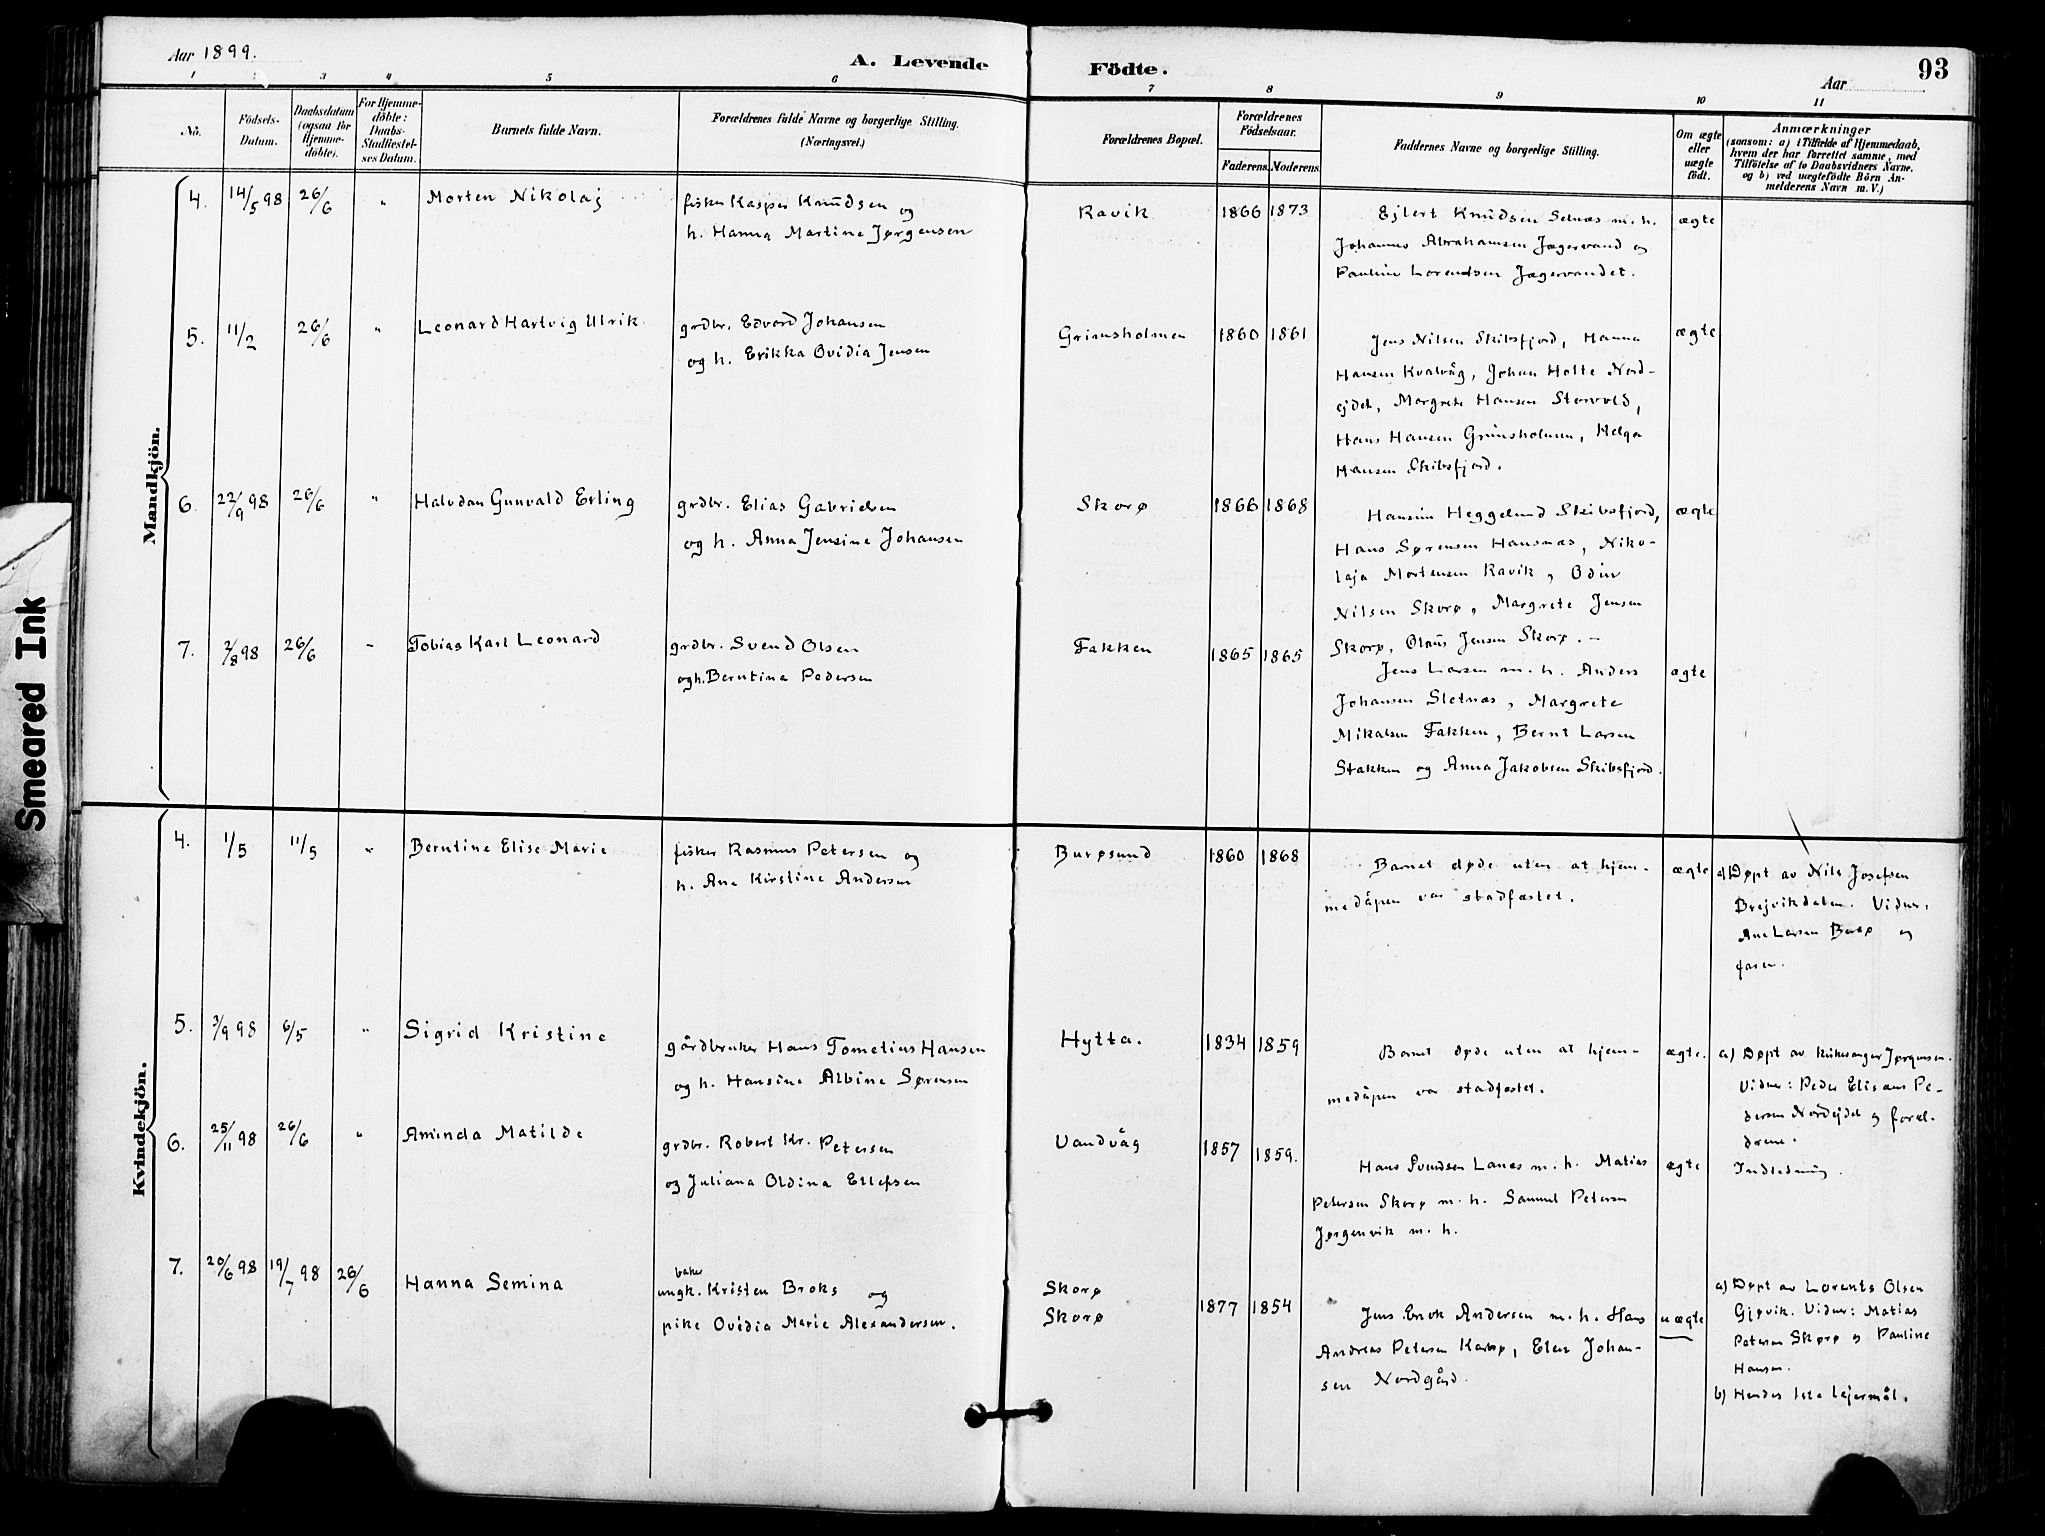 Aar 1899.
A. Levende Födte.
Aar
93
1 2 3 4 5 6 7 8 9 10 11
No.
Födsels-
Datum.
Daabsdatum
(ogsaa for
Hjemme-
döbte).
For Hjemme-
döbte:
Daabs-
Stadfæstel-
ses Datum.
Barnets fulde Navn.
Forældrenes fulde Navne og borgerlige Stilling.
(Næringsvei.)
Forældrenes Bopæl.
Forældrenes
Födselsaar.
Faderens. Moderens.
Faddernes Navne og borgerlige Stilling.
Om ægte
eller
uægte
födt.
Anmærkninger
(saasom: a) i Tilfælde af Hjemmedaab,
hvem der har forrettet samme, med
Tilföielse af to Daabsvidners Navne.
og b) ved uægtefödte Börn An-
melderens Navn m. V.)
Mandkjön.
4. 14/5 98 26/6 " Morten Nikolaj
fisker Kasper Knudsen og
h. Hanna Martine Jørgensen
Ravik 1866 1873
Ejlert Knudsen Selnæs m. h.
Johannes Abrahamsen Jægervand og
Pauline Lorendsen Jægervandet.
ægte
5. 11/2 26/6 " Leonard Hartvig Ulrik
grdbr. Edvard Johansen
og h. Erikka Ovidia Jensen
Grimsholmen 1860 1861
Jens Nilsen Skibsfjord, Hanna
Hansen Kvalvåg, Johan Holte Nord-
ejdet, Margrete Hansen Storvold,
Hans Hansen Grimsholmen, Helga
Hansen Skibsfjord.
ægte
6. 22/9 98 26/6 " Halvdan Gunvald Erling
grdbr. Elias Gabrielsen
og h. Anna Jensine Johansen
Skorø 1866 1868
Hansine Heggelund Skibsfjord,
Hans Sørensen Hansnæs, Niko-
laja Mortensen Ravik, Odin
Nilsen Skorø, Margrete Jensen
Skorø, Olaus Jensen Skorø. –
ægte
7. 2/8 98 26/6 " Tobias Karl Leonard
grdbr. Svend Olsen
og h. Berntina Pedersen
Fakken 1865 1865
Jens Larsen m. h. Anders
Johansen Sletnæs, Margrete
Mikalsen Fakken, Bernt Larsen
Stakken og Anna Jakobsen Skibsfjord.
ægte
Kvindekjön.
4. 1/5 11/5 " Berntine Elise Marie
fisker Rasmus Petersen og
h. Ane Kirstine Andersen
Burøsund 1860 1868
Barnet døde uten at hjem-
medåpen var stadfæstet.
ægte
a) Døpt av Nils Josefsen
Brejvikdalen. Vidner:
Ane Larsen Burø og
faren.
5. 3/9 98 6/5 " Sigrid Kristine
gårdbruker Hans Tomelius Hansen
og h. Hansine Albine Sørensen
Hytta. 1834 1859
Barnet døde uten at hjem-
medåpen var stadfæstet.
ægte.
a) Døpt av kirkesanger Jørgensen.
Vidner: Peder Elisæus Pe-
dersen Nordejdet og foræl-
drene.
6. 25/11 98 26/6 " Aminda Matilde
grdbr. Robert Kr. Petersen
og Juliana Oldina Ellefsen
Vandvåg 1857 1859.
Hans Svendsen Lanes m. h. Matias
Petersen Skorø m. h. Samuel Petersen
Jørgenvik m. h.
ægte
Indledning.
7. 20/6 98 19/7 98 26/6 Hanna Semina
baker
ungk. Kristen Broks og
pike Ovidia Marie Alexandersen.
Skorø
Skorø
1877 1854
Jens Enok Andersen m. h. Hans
Andreas Petersen Karlsø, Elen Johan-
sen Nordgård.
uægte
a) Døpt av Lorents Olsen
Gjøvik. Vidner: Matias
Petersen Skorø og Pauline
Hansen.
b) Hendes 1ste lejermål.
Smeared Ink